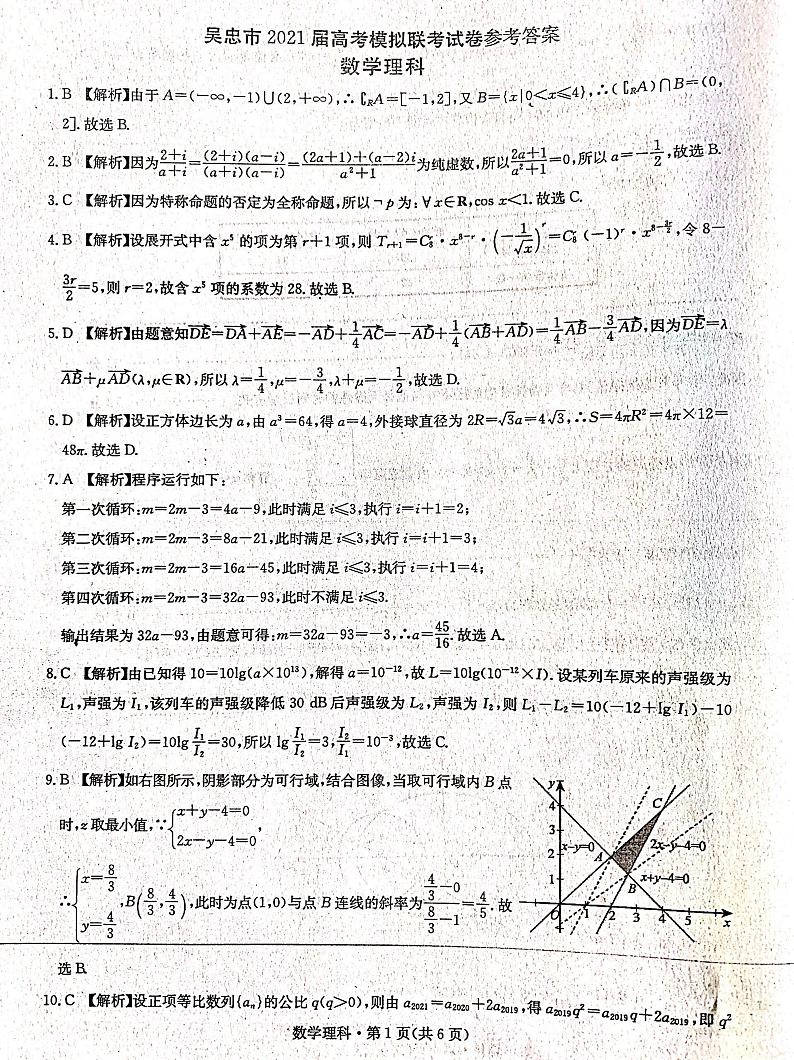 吴忠市 2021 届高考模拟联考试卷参考答案
数学理科
1. B 【解析】由于 A=(-∞,-1)∪(2,+∞),∴∁RA=[-1,2],又 B={x|0<x≤4},∴(∁RA)∩B=(0,
2].故选 B.
2. B 【解析】因为\frac{2+i}{a+i}=\frac{(2+i)(a-i)}{(a+i)(a-i)}=\frac{(2a+1)+(a-2)i}{a²+1}为纯虚数,所以\frac{2a+1}{a²+1}=0,所以 a=-\frac{1}{2},故选 B.
3. C 【解析】因为特称命题的否定为全称命题,所以¬p为:∀x∈R,cos x<1.故选 C.
4. B 【解析】设展开式中含 x⁵ 的项为第 r+1 项,则 T_{r+1}=C_8^r·x^{8-r}·(-\frac{1}{\sqrt{x}})^r=C_8^r(-1)^r·x^{8-\frac{3r}{2}},令 8-
\frac{3r}{2}=5,则 r=2,故含 x⁵ 项的系数为 28.故选 B.
5. D 【解析】由题意知\overrightarrow{DE}=\overrightarrow{DA}+\overrightarrow{AE}=-\overrightarrow{AD}+\frac{1}{4}\overrightarrow{AC}=-\overrightarrow{AD}+\frac{1}{4}(\overrightarrow{AB}+\overrightarrow{AD})=\frac{1}{4}\overrightarrow{AB}-\frac{3}{4}\overrightarrow{AD},因为\overrightarrow{DE}=λ
\overrightarrow{AB}+μ\overrightarrow{AD}(λ,μ∈R),所以 λ=\frac{1}{4},μ=-\frac{3}{4},λ+μ=-\frac{1}{2},故选 D.
6. D 【解析】设正方体边长为 a,由 a³=64,得 a=4,外接球直径为 2R=√3a=4√3,∴S=4πR²=4π×12=
48π.故选 D.
7. A 【解析】程序运行如下:
第一次循环:m=2m-3=4a-9,此时满足 i≤3,执行 i=i+1=2;
第二次循环:m=2m-3=8a-21,此时满足 i≤3,执行 i=i+1=3;
第三次循环:m=2m-3=16a-45,此时满足 i≤3,执行 i=i+1=4;
第四次循环:m=2m-3=32a-93,此时不满足 i≤3.
输出结果为 32a-93,由题意可得:m=32a-93=-3,∴a=\frac{45}{16}.故选 A.
8. C 【解析】由已知得 10=10lg(a×10¹³),解得 a=10⁻¹²,故 L=10lg(10⁻¹²×I).设某列车原来的声强级为
L₁,声强为 I₁,该列车的声强级降低 30 dB 后声强级为 L₂,声强为 I₂,则 L₁-L₂=10(-12+lg I₁)-10
(-12+lg I₂)=10lg\frac{I₁}{I₂}=30,所以 lg\frac{I₁}{I₂}=3,\frac{I₂}{I₁}=10⁻³,故选 C.
9. B 【解析】如右图所示,阴影部分为可行域,结合图像,当取可行域内 B 点
时,z 取最小值,∵{x+y-4=0
2x-y-4=0,
∴{x=\frac{8}{3}
y=\frac{4}{3},B(\frac{8}{3},\frac{4}{3}),此时为点(1,0)与点 B 连线的斜率为\frac{\frac{4}{3}-0}{\frac{8}{3}-1}=\frac{4}{5}.故
选 B.
y
4
3
2
1
C
x-y=0
A
2x-y-4=0
x+y-4=0
B
O
1 2 3 4 5 x
10. C 【解析】设正项等比数列{aₙ}的公比 q(q>0),则由 a₂₀₂₁=a₂₀₂₀+2a₂₀₁₉,得 a₂₀₁₉q²=a₂₀₁₉q+2a₂₀₁₉,即 q²
数学理科·第 1 页(共 6 页)